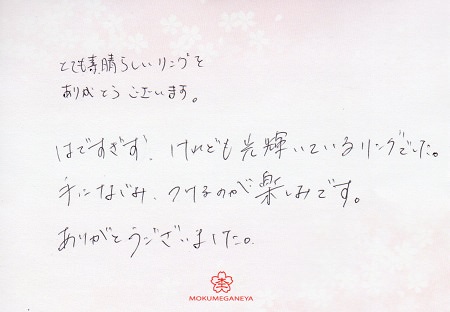 とても素晴らしいリングを
ありがとうございます。
はですぎず、けれども光輝いているリングでした。
手になじみ、つけるのが楽しみです。
ありがとうございました。
MOKUMEGANEYA